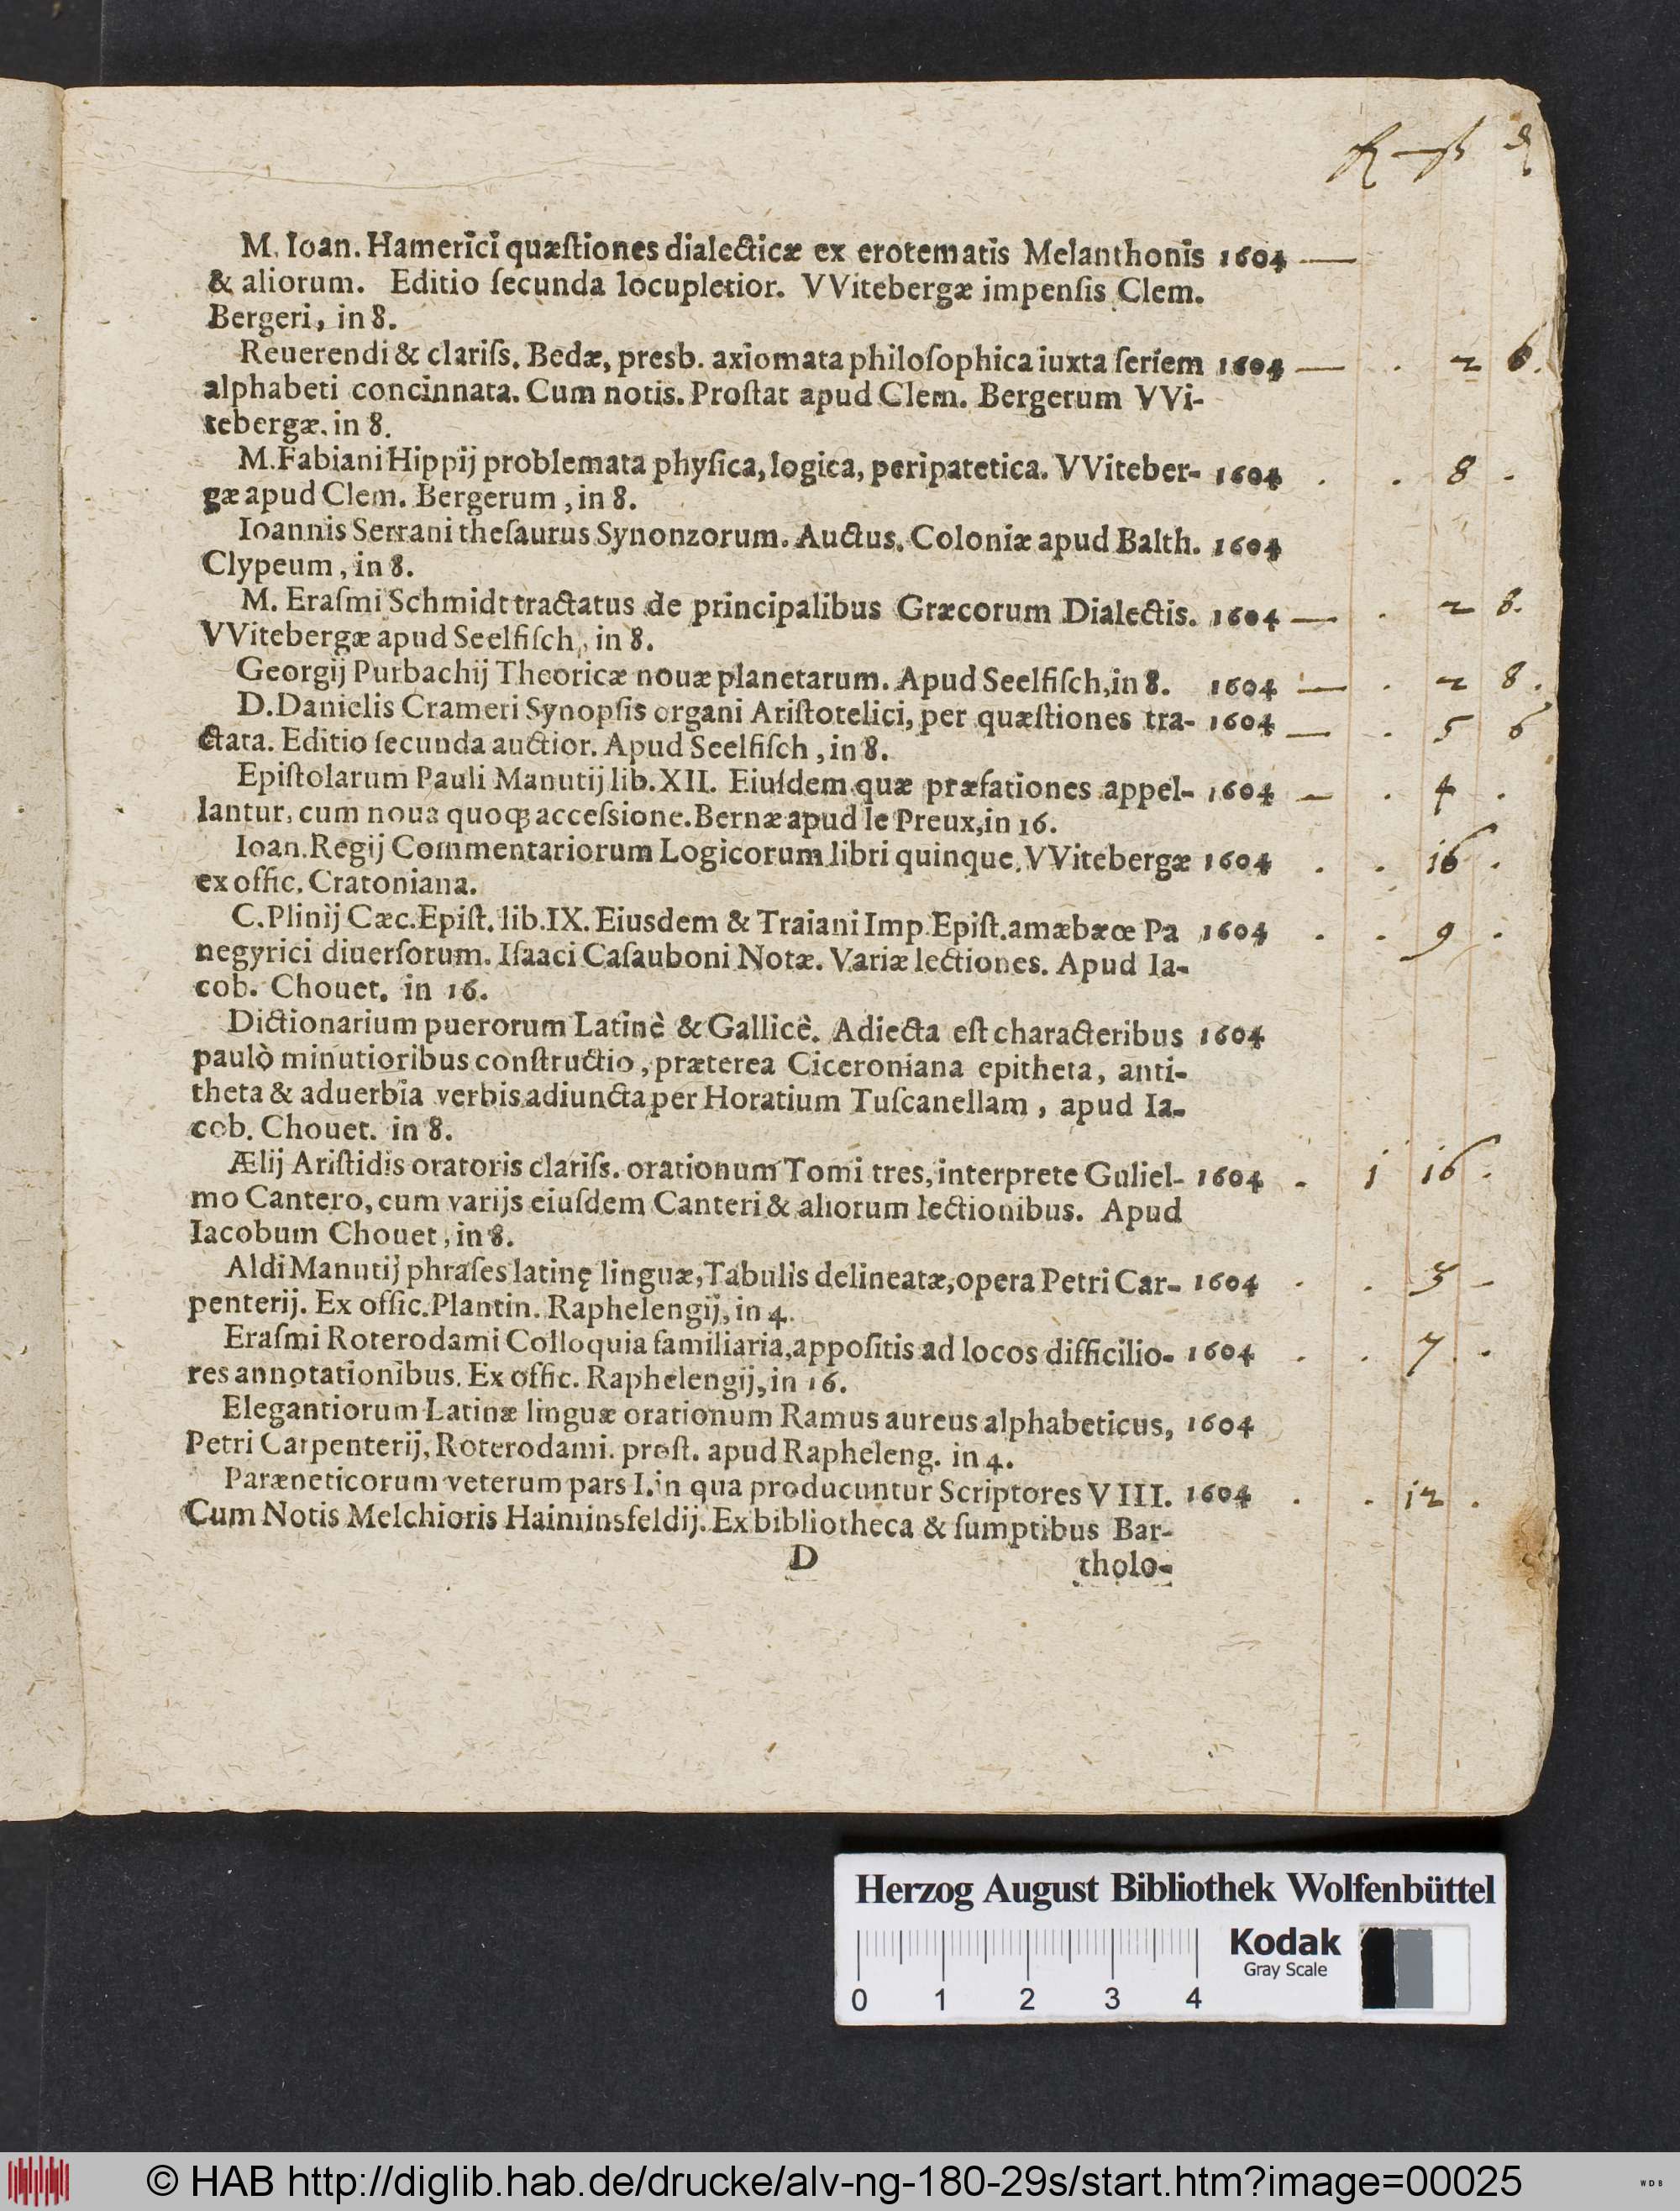 M. Ioan. Hamerici quæſtiones dialecticæ ex erotematis Melanthonis 1604 —
& aliorum. Editio ſecunda locupletior. VVitebergæ impenſis Clem.
Bergeri, in 8.
Reuerendi & clariſs. Bedæ, presb. axiomata philoſophica iuxta ſeriem 1604 — . 2 6.
alphabeti concinnata. Cum notis. Proſtat apud Clem. Bergerum VVi-
tebergæ. in 8.
M. Fabiani Hippij problemata phyſica, logica, peripatetica. VViteber- 1604 . . 8 .
gæ apud Clem. Bergerum, in 8.
Ioannis Serrani theſaurus Synonzorum. Auctus. Coloniæ apud Balth. 1604
Clypeum, in 8.
M. Eraſmi Schmidt tractatus de principalibus Græcorum Dialectis. 1604 — . 2 8.
VVitebergæ apud Seelfiſch, in 8.
Georgij Purbachij Theoricæ nouæ planetarum. Apud Seelfiſch, in 8. 1604 — . 2 8.
D. Danielis Crameri Synopſis organi Ariſtotelici, per quæſtiones tra- 1604 — . 5 6
ctata. Editio ſecunda auctior. Apud Seelfiſch, in 8.
Epiſtolarum Pauli Manutij lib. XII. Eiuſdem quæ præfationes appel- 1604 — . 4 .
lantur, cum noua quoq; acceſsione. Bernæ apud le Preux, in 16.
Ioan. Regij Commentariorum Logicorum libri quinque. VVitebergæ 1604 . . 16 .
ex offic. Cratoniana.
C. Plinij Cæc. Epiſt. lib. IX. Eiusdem & Traiani Imp. Epiſt. amæbææ Pa 1604 . . 9 .
negyrici diuerſorum. Iſaaci Caſauboni Notæ. Variæ lectiones. Apud Ia-
cob. Chouet. in 16.
Dictionarium puerorum Latinè & Gallicè. Adiecta eſt characteribus 1604
paulò minutioribus conſtructio, præterea Ciceroniana epitheta, anti-
theta & aduerbia verbis adiuncta per Horatium Tuſcanellam, apud Ia-
cob. Chouet. in 8.
Ælij Ariſtidis oratoris clariſs. orationum Tomi tres, interprete Guliel- 1604 . 1 16 .
mo Cantero, cum varijs eiuſdem Canteri & aliorum lectionibus. Apud
Iacobum Chouet, in 8.
Aldi Manutij phraſes latinę linguæ, Tabulis delineatæ, opera Petri Car- 1604 . .
penterij. Ex offic. Plantin. Raphelengij, in 4.
Eraſmi Roterodami Colloquia familiaria, appoſitis ad locos difficilio- 1604 . . 7 .
res annotationibus. Ex offic. Raphelengij, in 16.
Elegantiorum Latinæ linguæ orationum Ramus aureus alphabeticus, 1604
Petri Carpenterij, Roterodami. proſt. apud Rapheleng. in 4.
Paræneticorum veterum pars I. in qua producuntur Scriptores VIII. 1604 . . 12 .
Cum Notis Melchioris Haiminsfeldij. Ex bibliotheca & ſumptibus Bar-
D tholo-
Herzog August Bibliothek Wolfenbüttel
Kodak
Gray Scale
0 1 2 3 4
© HAB http://diglib.hab.de/drucke/alv-ng-180-29s/start.htm?image=00025
WDB